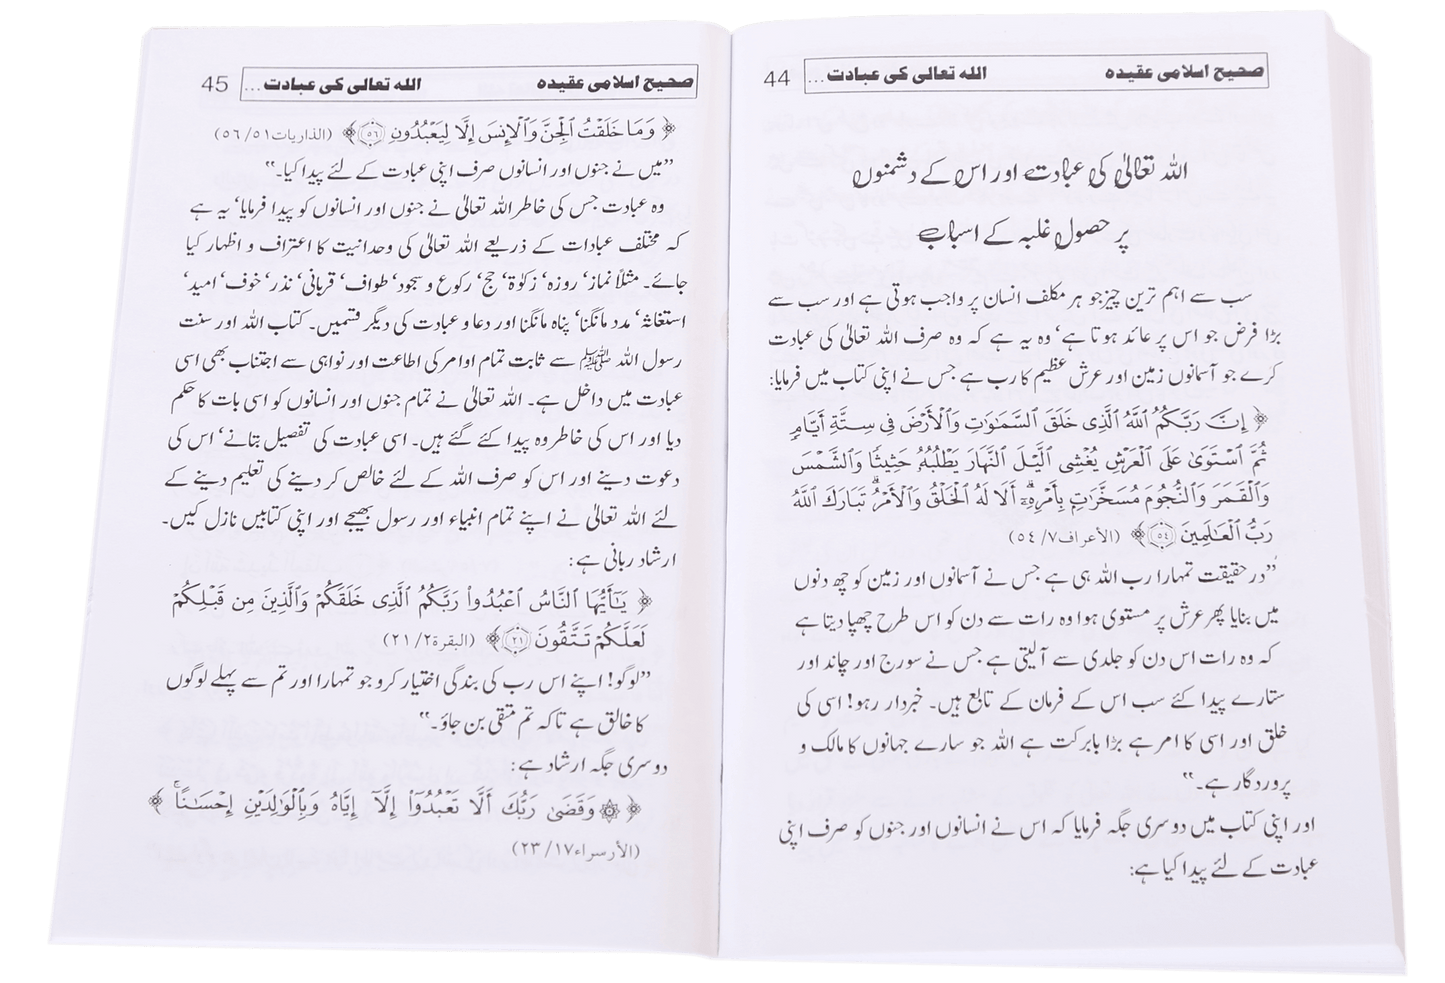 صحیح اسلامی عقیدہ اللہ تعالی کی عبادت ... 44
اللہ تعالیٰ کی عبادت اور اس کے دشمنوں
پر حصول غلبہ کے اسباب
سب سے اہم ترین چیز جو ہر مکلف انسان پر واجب ہوتی ہے اور سب سے
بڑا فرض جو اس پر عائد ہوتا ہے‘ وہ یہ ہے کہ وہ صرف اللہ تعالیٰ کی عبادت
کرے جو آسمانوں زمین اور عرش عظیم کا رب ہے جس نے اپنی کتاب میں فرمایا:
﴿ إِنَّ رَبَّكُمُ ٱللَّهُ ٱلَّذِى خَلَقَ ٱلسَّمَـٰوَٰتِ وَٱلْأَرْضَ فِى سِتَّةِ أَيَّامٍ
ثُمَّ ٱسْتَوَىٰ عَلَى ٱلْعَرْشِ يُغْشِى ٱلَّيْلَ ٱلنَّهَارَ يَطْلُبُهُۥ حَثِيثًا وَٱلشَّمْسَ
وَٱلْقَمَرَ وَٱلنُّجُومَ مُسَخَّرَٰتٍۭ بِأَمْرِهِۦٓ ۗ أَلَا لَهُ ٱلْخَلْقُ وَٱلْأَمْرُ ۗ تَبَارَكَ ٱللَّهُ
رَبُّ ٱلْعَـٰلَمِينَ ۝٥٤ ﴾ (الأعراف٧/ ٥٤)
”در حقیقت تمہارا رب اللہ ہی ہے جس نے آسمانوں اور زمین کو چھ دنوں
میں بنایا پھر عرش پر مستوی ہوا وہ رات سے دن کو اس طرح چھپا دیتا ہے
کہ وہ رات اس دن کو جلدی سے آ لیتی ہے جس نے سورج اور چاند اور
ستارے پیدا کئے سب اس کے فرمان کے تابع ہیں۔ خبردار رہو! اسی کی
خلق اور اسی کا امر ہے بڑا بابرکت ہے اللہ جو سارے جہانوں کا مالک و
پروردگار ہے۔“
اور اپنی کتاب میں دوسری جگہ فرمایا کہ اس نے انسانوں اور جنوں کو صرف اپنی
عبادت کے لئے پیدا کیا ہے:
صحیح اسلامی عقیدہ اللہ تعالی کی عبادت ... 45
﴿ وَمَا خَلَقْتُ ٱلْجِنَّ وَٱلْإِنسَ إِلَّا لِيَعْبُدُونِ ۝٥٦ ﴾ (الذاریات٥١/ ٥٦)
”میں نے جنوں اور انسانوں صرف اپنی عبادت کے لئے پیدا کیا۔“
وہ عبادت جس کی خاطر اللہ تعالیٰ نے جنوں اور انسانوں کو پیدا فرمایا‘ یہ ہے
کہ مختلف عبادات کے ذریعے اللہ تعالیٰ کی وحدانیت کا اعتراف و اظہار کیا
جائے۔ مثلاً نماز‘ روزہ‘ زکوٰۃ‘ حج‘ رکوع و سجود‘ طواف‘ قربانی‘ نذر‘ خوف‘ امید‘
استغاثہ‘ مدد مانگنا‘ پناہ مانگنا اور دعا و عبادت کی دیگر قسمیں۔ کتاب اللہ اور سنت
رسول اللہ ﷺ سے ثابت تمام اوامر کی اطاعت اور نواہی سے اجتناب بھی اسی
عبادت میں داخل ہے۔ اللہ تعالیٰ نے تمام جنوں اور انسانوں کو اسی بات کا حکم
دیا اور اس کی خاطر وہ پیدا کئے گئے ہیں۔ اسی عبادت کی تفصیل بتانے‘ اس کی
دعوت دینے اور اس کو صرف اللہ کے لئے خالص کر دینے کی تعلیم دینے کے
لئے اللہ تعالیٰ نے اپنے تمام انبیاء اور رسول بھیجے اور اپنی کتابیں نازل کیں۔
ارشاد ربانی ہے:
﴿ يَـٰٓأَيُّهَا ٱلنَّاسُ ٱعْبُدُوا۟ رَبَّكُمُ ٱلَّذِى خَلَقَكُمْ وَٱلَّذِينَ مِن قَبْلِكُمْ
لَعَلَّكُمْ تَتَّقُونَ ۝٢١ ﴾ (البقرة٢/ ٢١)
”لوگو! اپنے اس رب کی بندگی اختیار کرو جو تمہارا اور تم سے پہلے لوگوں
کا خالق ہے تاکہ تم متقی بن جاؤ۔“
دوسری جگہ ارشاد ہے:
﴿ ۞ وَقَضَىٰ رَبُّكَ أَلَّا تَعْبُدُوٓا۟ إِلَّآ إِيَّاهُ وَبِٱلْوَٰلِدَيْنِ إِحْسَـٰنًا ۚ ﴾
(الأرسراء١٧/ ٢٣)